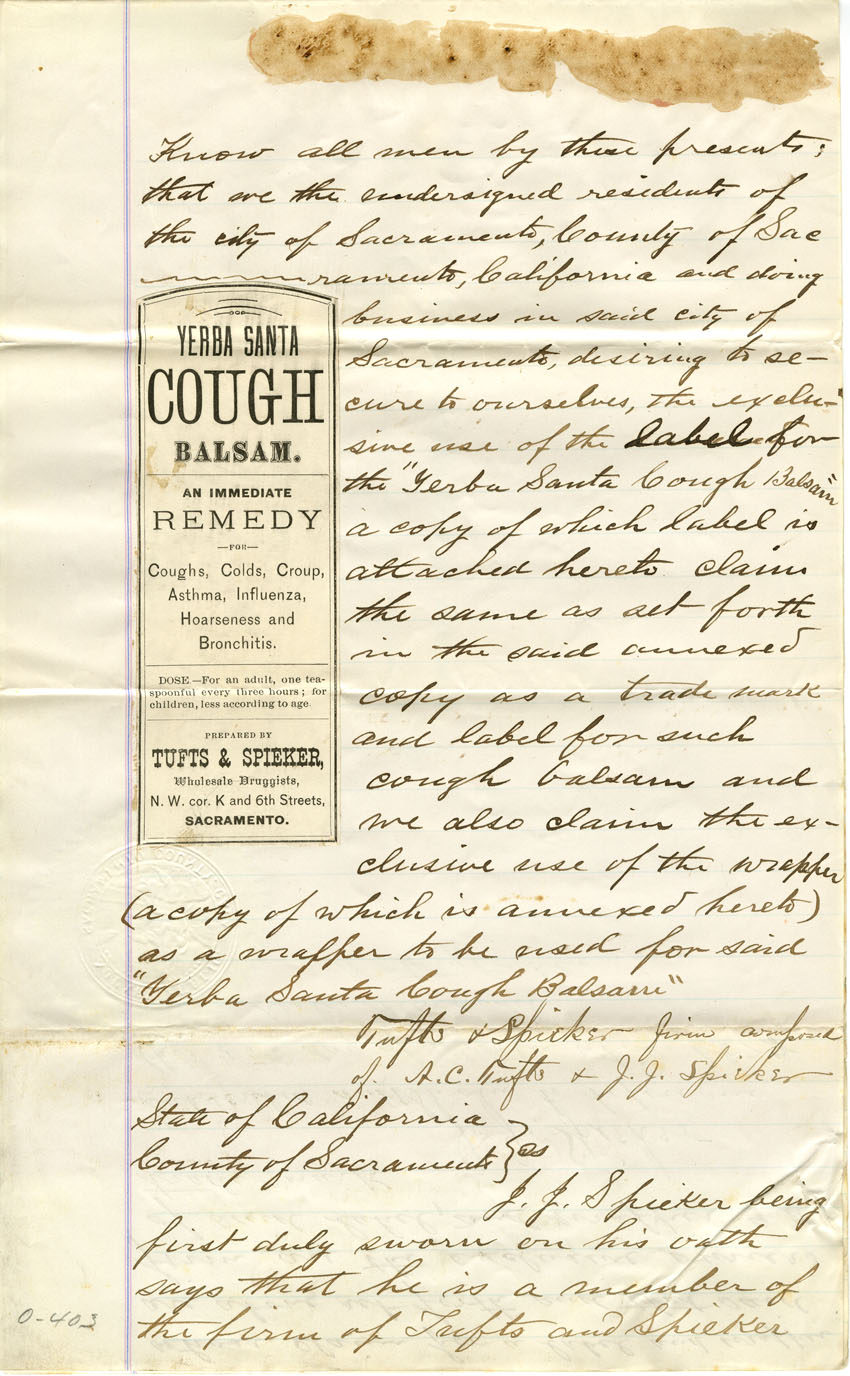 Know all men by these presents;
that we the undersigned residents of
the city of Sacramento, County of Sac
ramento, California and doing
business in said city of
Sacramento, desiring to se-
cure to ourselves, the exclu-
sive use of the label for
the "Yerba Santa Cough Balsam"
a copy of which label is
attached hereto claim
the same as set forth
in the said annexed
copy as a trade mark
and label for such
cough balsam and
we also claim the ex-
clusive use of the wrapper
(a copy of which is annexed hereto)
as a wrapper to be used for said
"Yerba Santa Cough Balsam"
Tufts & Spieker firm composed
of A. C. Tufts & J. J. Spieker
State of California
County of Sacramento } ss
J. J. Spieker being
first duly sworn on his oath
says that he is a member of
the firm of Tufts and Spieker
YERBA SANTA
COUGH
BALSAM.
AN IMMEDIATE
REMEDY
—FOR—
Coughs, Colds, Croup,
Asthma, Influenza,
Hoarseness and
Bronchitis.
DOSE.—For an adult, one tea-
spoonful every three hours; for
children, less according to age.
PREPARED BY
TUFTS & SPIEKER,
Wholesale Druggists,
N. W. cor. K and 6th Streets,
SACRAMENTO.
0-403